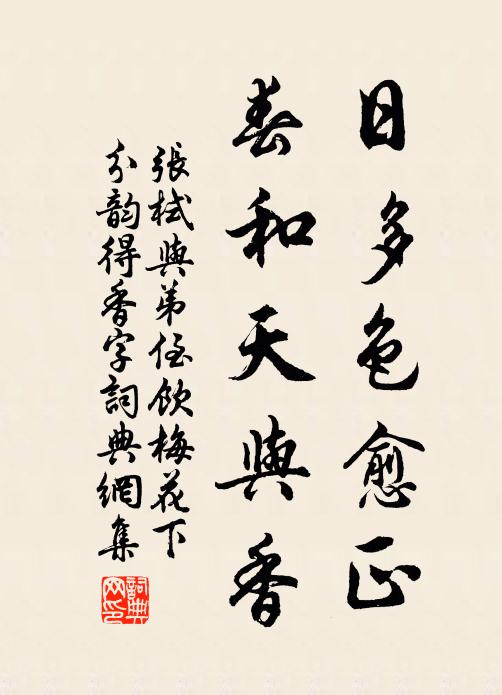 日多色愈正
春和天與香
張栻與弟侄飲梅花下
分韵得香字詞典網集
詞典网印